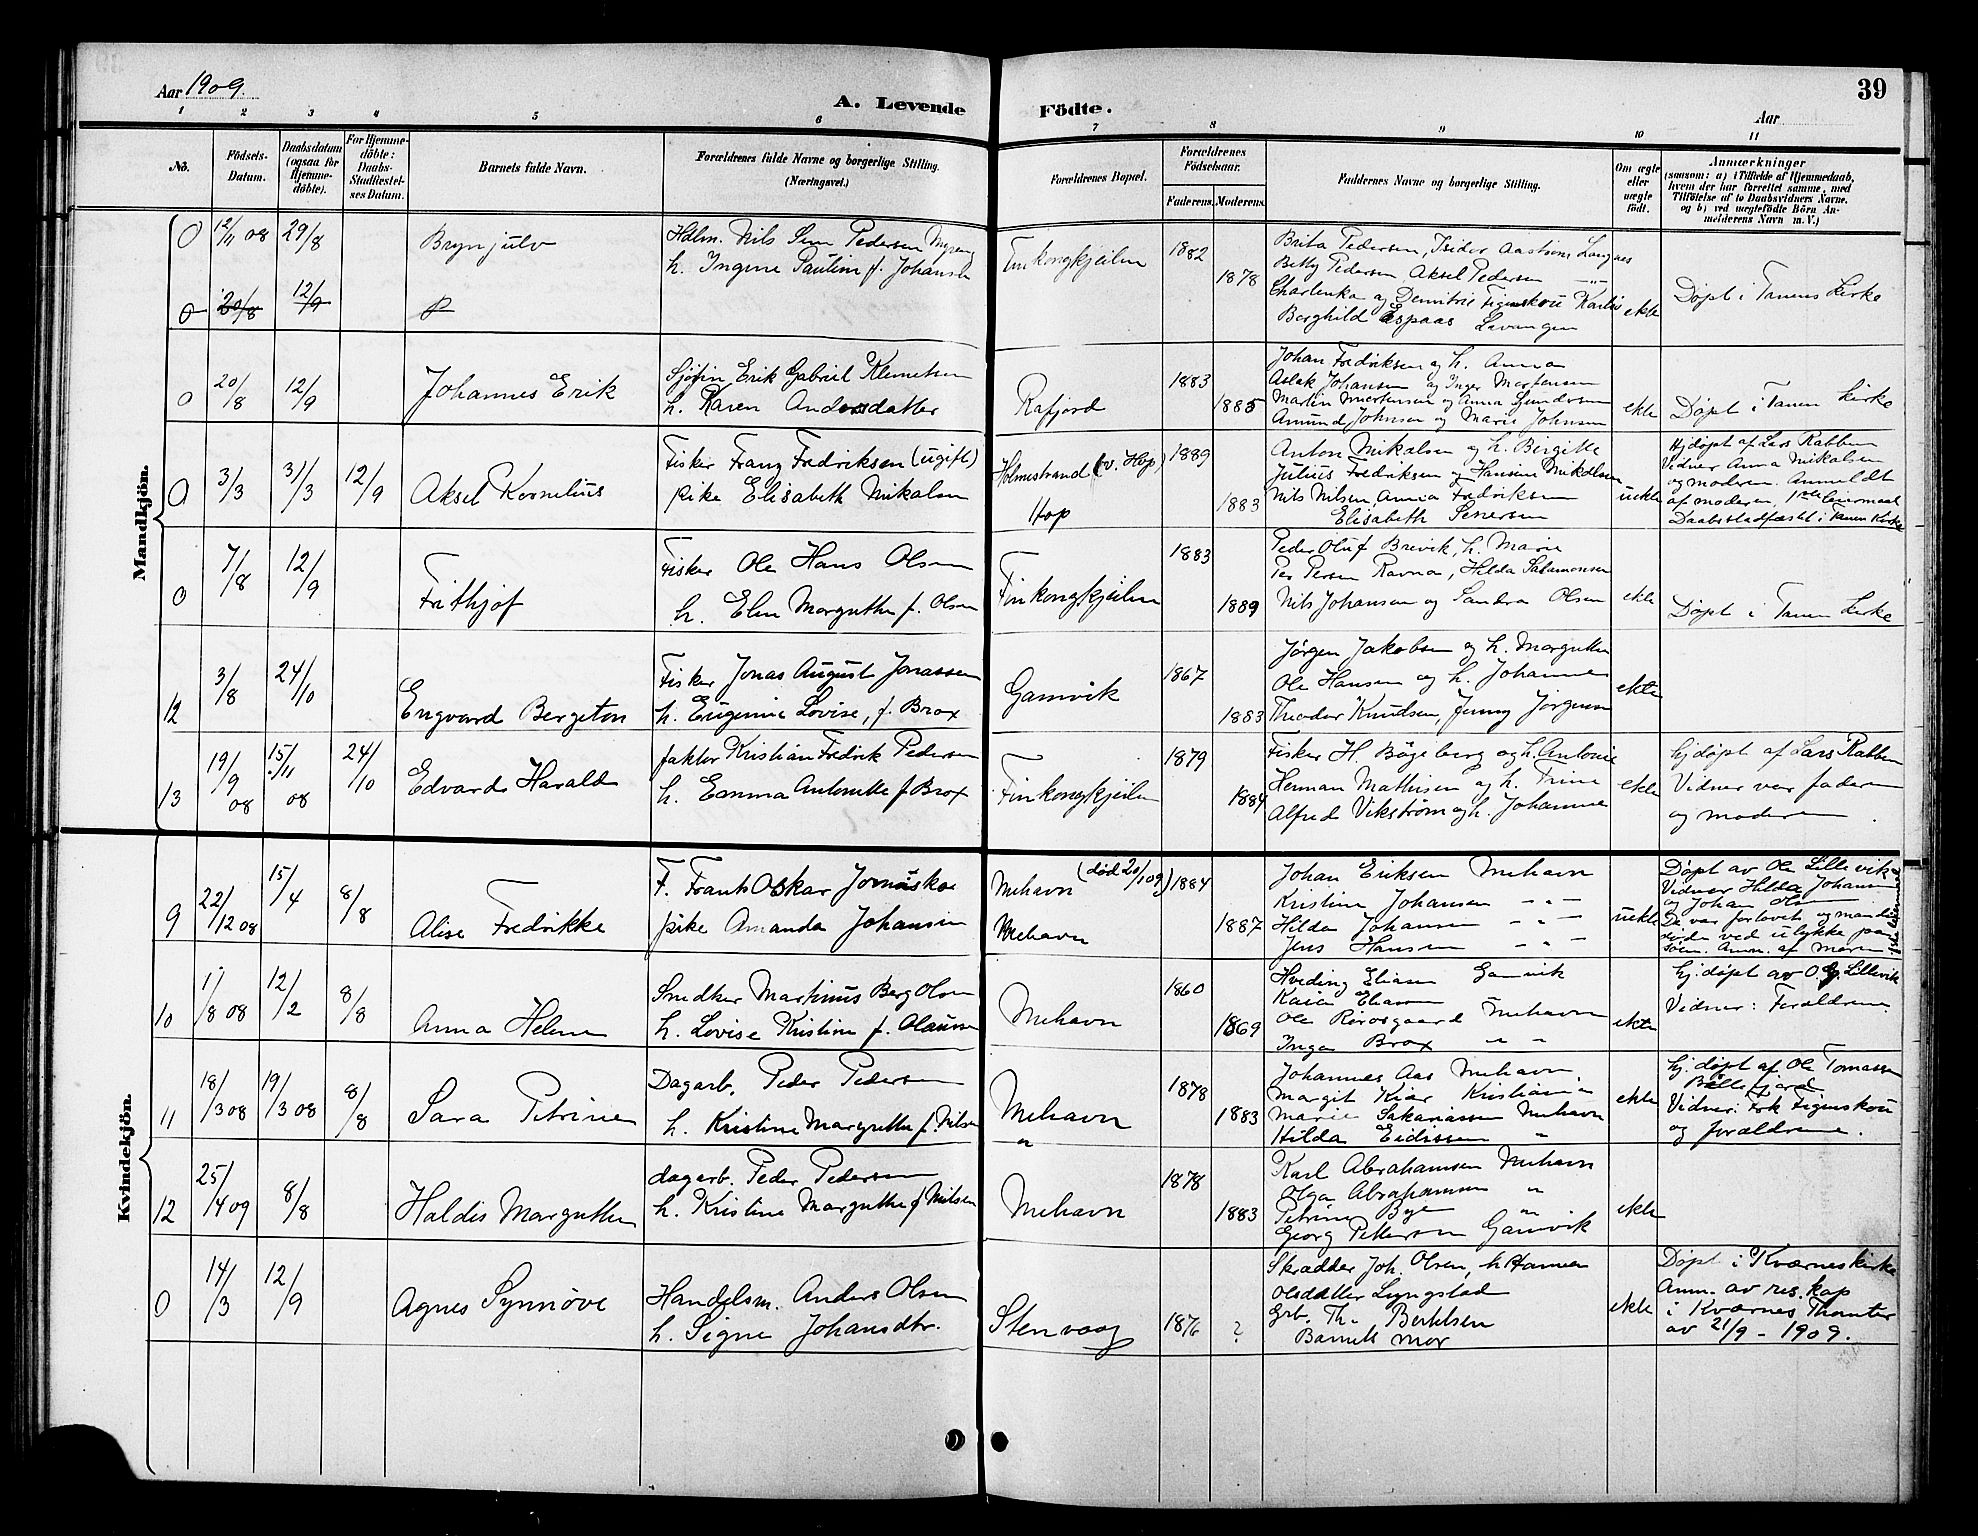 Aar 1909.
A. Levende Födte.
39
Aar
1 2 3 4 5 6 7 8 9 10 11
No.
Födsels-Datum.
Daabsdatum (ogsaa for Hjemme-döbte).
For Hjemme-döbte: Daabs-Stadfæstel-ses Datum.
Barnets fulde Navn.
Forældrenes fulde Navne og borgerlige Stilling. (Næringsvei.)
Forældrenes Bopæl.
Forældrenes Födselsaar.
Faderens. Moderens.
Faddernes Navne og borgerlige Stilling.
Om ægte eller uægte födt.
Anmærkninger
(saasom: a) i Tilfælde af Hjemmedaab,
hvem der har forrettet samme, med
Tilföielse af to Daabsvidners Navne.
og b) ved uægtefödte Börn An-
melderens Navn m. V.)
Mandkjön.
0 12/11 08 29/8 Brynjulv
Hdlm. Nils Pedersen Myreng
h. Ingine Pauline f. Johansen
Finkongkjeilen 1882 1878
Brita Pedersen, Isidor Aastrøm, Langnes
Betty Pedersen Aksel Pedersen
Charlenka og Demitrie Figenskou
Berghild Espaas Levangen
ekte
Døpt i Tanens Kirke
0 20/8 12/9
0 20/8 12/9 Johannes Erik
Sjøfin Erik Gabriel Klemetsen
h. Karen Andersdatter
Rafjord 1883 1885
Johan Fredriksen og h. Anna
Aslak Johansen og Inger Mortensen
Martin Mortensen og Anna Gundersen
Amund Johnsen og Marie Johnsen
ekte
Døpt i Tanen Kirke
0 3/3 31/3 12/9 Aksel Kornelius
Fisker Franz Fredriksen (ugift)
pike Elisabeth Nikalsen
Holmestrand (v. Hop)
Hop
1889 1883
Anton Nikalsen og h. Birgitte
Julius Fredriksen og Hansine Nikalsen
Nils Nilsen Anna Fredriksen
Elisabeth Senersen
uekte
Hjdøpt af Lars Rabben
Vidner Anna Nikalsen
og moderen. Anmeldt
af moderen, 1ste leiermaal
Daabsstadfæstet i Tanen Kirke
0 7/8 12/9 Frithjof
Fisker Ole Hans Olsen
h. Elen Margrethe f. Olsen
Finkongkjeilen 1883 1889
Peder Oluf Brevik, h. Marie
Per Persen Ravna, Hilda Salamonsen
Nils Johansen og Sandra Olsen
ekte
Døpt i Tanen Kirke
12 3/8 24/10 Engvard Bergeton
Fisker Jonas August Jonassen
h. Eugenie Lovise, f. Brox
Gamvik 1867 1883
Jørgen Jakobsen og h. Margrethe
Ole Hansen og h. Johanne
Theodor Knudsen, Jenny Jørgensen
ekte
13 19/9 08 15/11 08 24/10 Edvard Harald
faktor Kristian Fredrik Pedersen
h. Emma Antonette f. Brox
Finkongkjeilen 1879 1884
Fisker H. Bøgeberg og h. Antonie
Herman Mathisen og h. Trine
Alfred Vikstrøm og h. Johanne
ekte
hjdøpt af Lars Rabben
Vidner var faderen
og moderen
Kvindekjön.
9 22/12 08 15/4 8/8 Alise Fredrikke
F. Frants Oskar
pike Amanda Johansen
Mehavn (død 20/1 09)
Mehavn
1884 1887
Johan Eriksen Mehavn
Kristine Johansen " "
Hilda Johansen " "
Jens Hansen " "
uekte
Døpt av Ole Lillevik
Vidner Hilda Johansen
og Johan Olsen
De var forlovet og manden
døde ved ulykke paa
søen. Anm. af moren
10 1/8 08 12/2 8/8 Anna Helene
Snedker Martinus Berg Olsen
h. Lovise Kristine f. Olausen
Mehavn 1860 1869
Hviding Eliasen Gamvik
Kaia Eliasen
Ole Rørosgaard Mehavn
Inga Brox " "
ekte
hj.døpt av O. G. Lillevik
Vidner: Forældrene.
11 18/3 08 19/3 08 8/8 Sara Petrine
Dagarb. Peder Pedersen
h. Kristine Margrethe f. Nilsen
Mehavn
"
1878 1883
Johannes Aas Mehavn
Margit Kiær Kristiania
Marie Sakariassen Mehavn
Hilda Eidissen "
ekte
hj.døpt af Ole Tomassen
Billefjord
Vidner: Frk Figenskou
og forældrene.
12 25/4 09 8/8 Haldis Margrethe
dagarb. Peder Pedersen
h. Kristine Margrethe f. Nilsen
Mehavn 1878 1883
Karl Abrahamsen Mehavn
Olga Abrahamsen "
Petrine Bye "
Georg Pettersen Gamvik
ekte
0 14/3 12/9 Agnes Synnøve
Handelsm. Anders Olsen
h. Signe Johansdtr.
Stenvaag 1876 ?
Skrædder Joh. Olsen, h. Hanna
Olsdatter Lyngstad
Grb. Th. Berthelsen
Barnets mor
ekte
Døpt i Kværnes kirke
Anm. av res. kap
i Kværnes
av 21/9 - 1909.